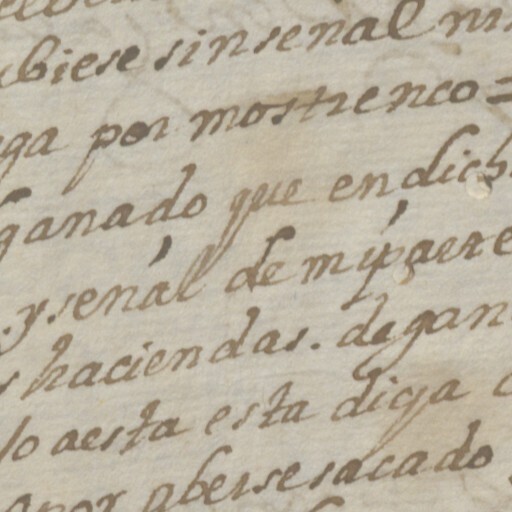 ubiese sin señal ni
ga por mostrenco =
ganado que en dich
y señal de mi padre
s haciendas. de gan
lo aesta esta diga
apor aberse sacado